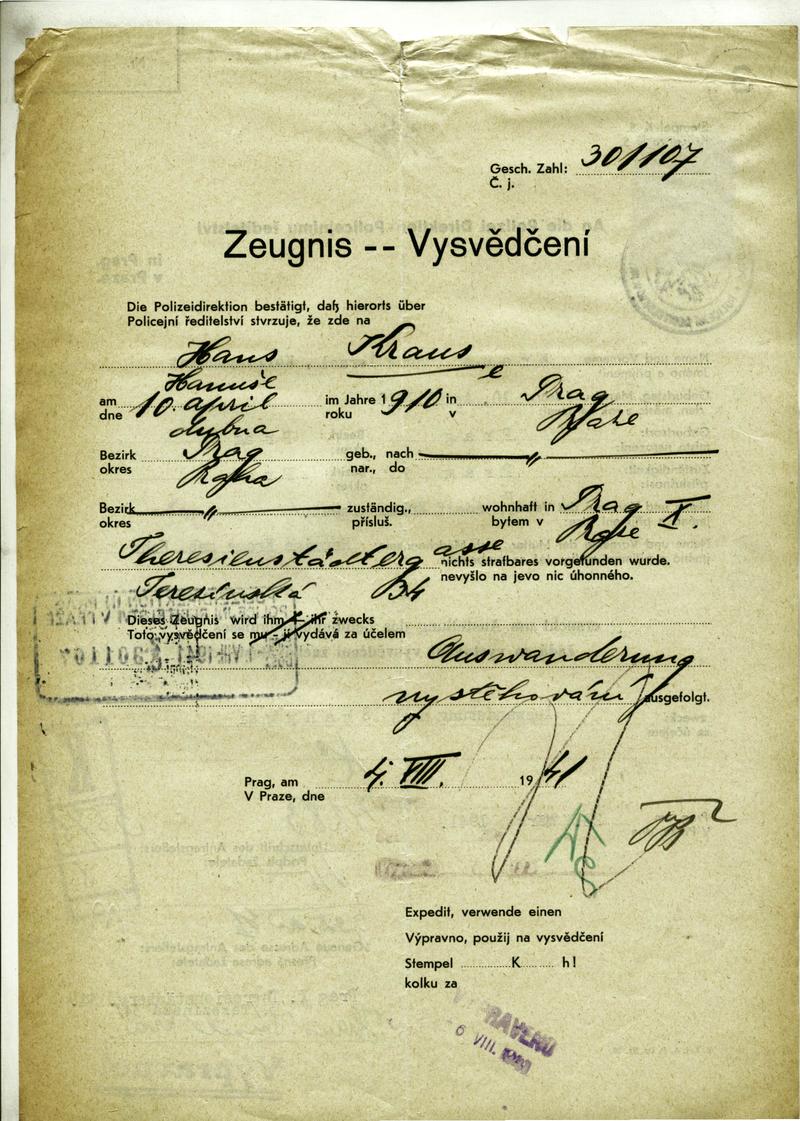 Gesch. Zahl: 301107
Č. j.
Zeugnis -- Vysvědčení
Die Polizeidirektion bestätigt, daß hierorts über
Policejní ředitelství stvrzuje, že zde na
Hans Kraus
Hanuše e
am 10. april im Jahre 1910 in Prag
dne dubna roku v Praze
Bezirk Prag geb., nach — " —
okres Praha nar., do
Bezirk — " — zuständig., wohnhaft in Prag X.
okres přísluš. bytem v Praze
Theresienstädtergasse nichts strafbares vorgefunden wurde.
Terezínská 34 nevyšlo na jevo nic úhonného.
Dieses Zeugnis wird ihm - ihr zwecks
Toto vysvědčení se mu - jí vydává za účelem
Auswanderung
vystěhování ausgefolgt.
Prag, am 4. VIII. 1941
V Praze, dne
Expedit, verwende einen
Výpravno, použij na vysvědčení
Stempel K h!
kolku za
VYPRAVENO
6 VIII. 1941